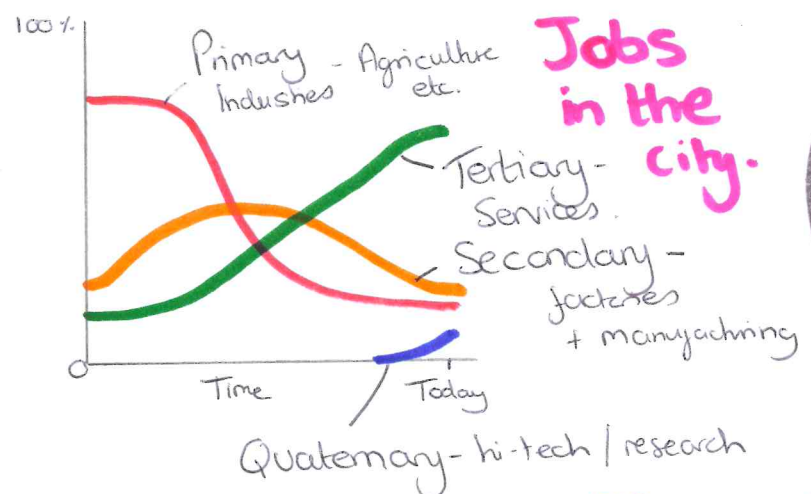 100%
Primary - Agriculture
Industries etc.
Jobs
in the
city.
Tertiary -
Services.
Secondary -
factories
+ manufacturing
0
Time
Today
Quaternary - hi-tech / research